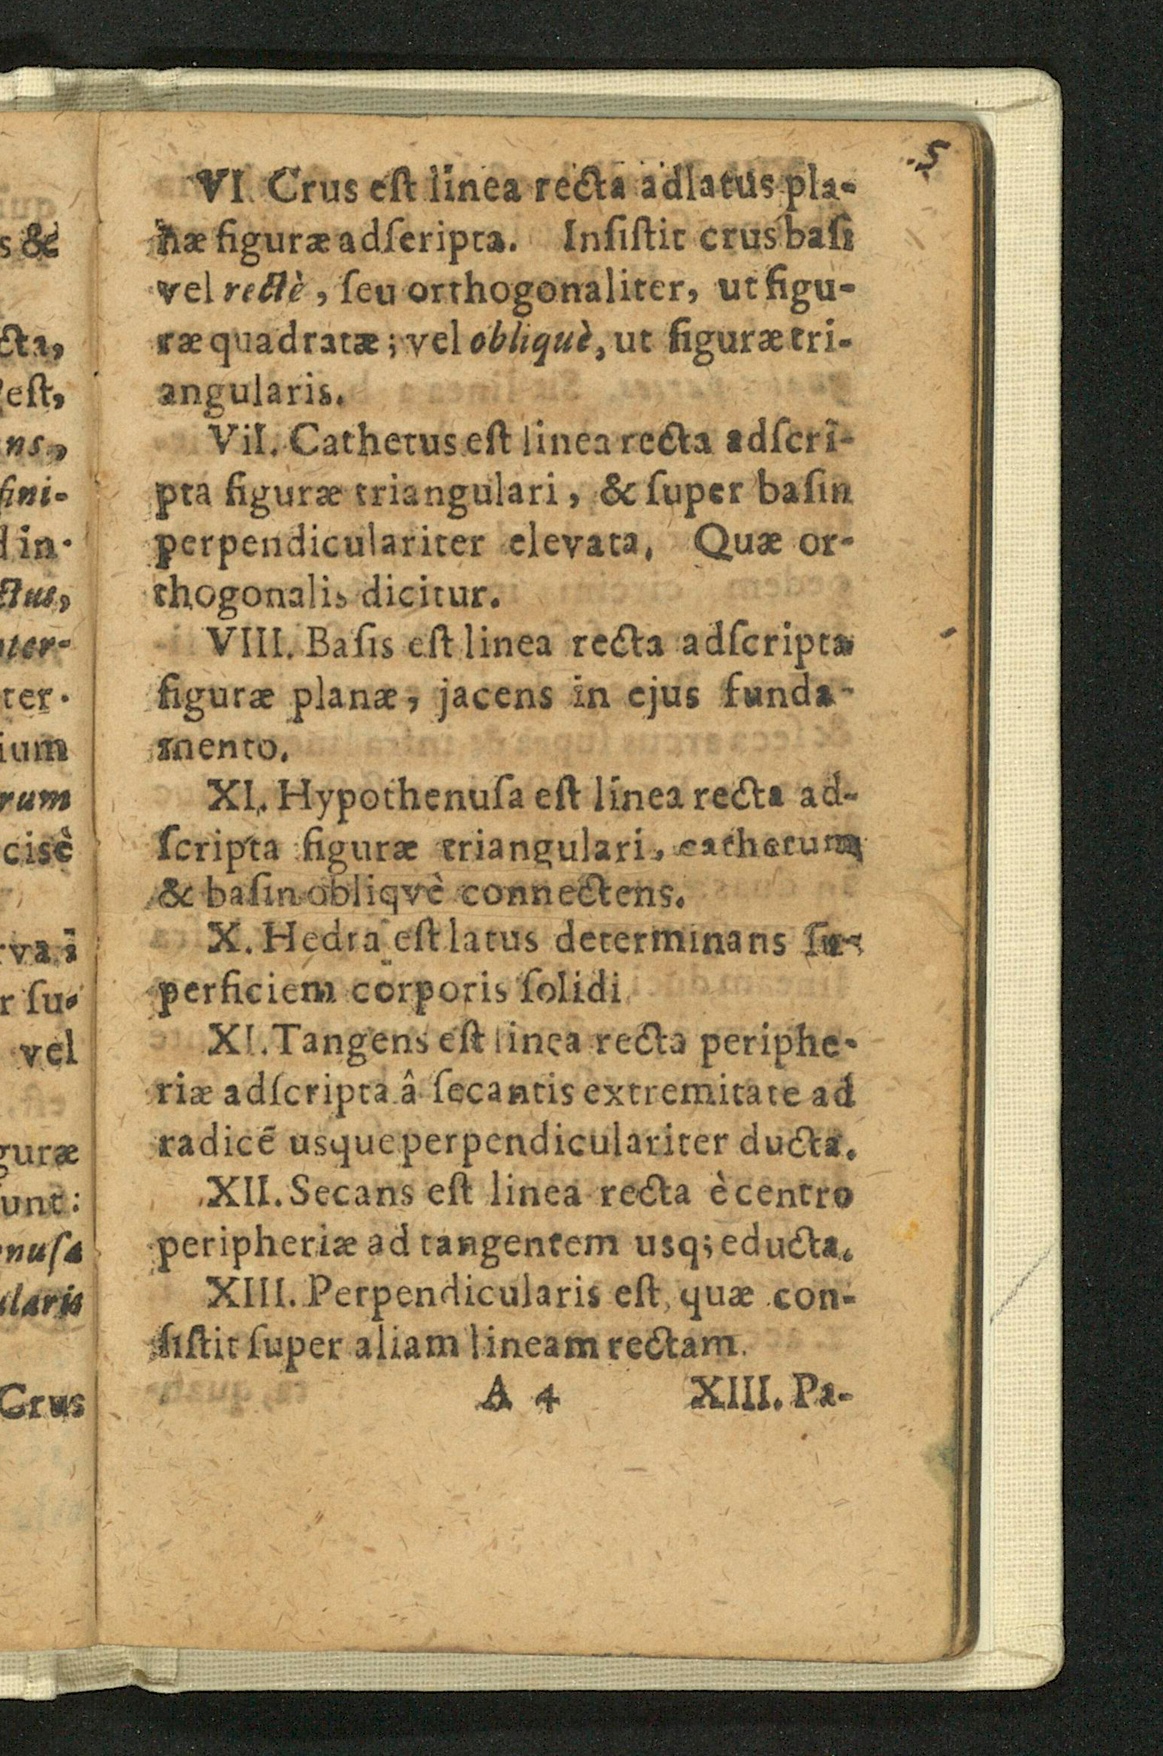 5
VI. Crus eſt linea recta adlatus pla-
næ figuræ adſcripta. Inſiſtit crus baſi
vel rectè, ſeu orthogonaliter, ut figu-
ræ quadratæ; vel obliquè, ut figuræ tri-
angularis.
VII. Cathetus eſt linea recta adſcri-
pta figuræ triangulari, & ſuper baſin
perpendiculariter elevata. Quæ or-
thogonalis dicitur.
VIII. Baſis eſt linea recta adſcripta
figuræ planæ, jacens in ejus funda-
mento.
XI. Hypothenuſa eſt linea recta ad-
ſcripta figuræ triangulari, cathetum
& baſin obliqvè connectens.
X. Hedra eſt latus determinans ſu-
perficiem corporis ſolidi.
XI. Tangens eſt linea recta periphe-
riæ adſcripta â ſecantis extremitate ad
radicē usque perpendiculariter ducta.
XII. Secans eſt linea recta è centro
peripheriæ ad tangentem usq; educta.
XIII. Perpendicularis eſt, quæ con-
ſiſtit ſuper aliam lineam rectam.
A 4 XIII. Pa-
s &
cta,
eſt,
ns,
fini-
d in-
ctus,
nter-
ter-
ium
rum
cisè
rva à
r ſu-
vel
guræ
unt:
enuſa
ularis
Crus